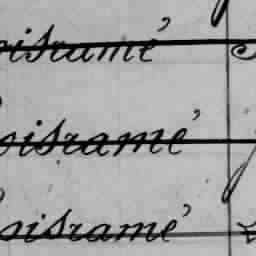 oisramé
oisramé
oisramé